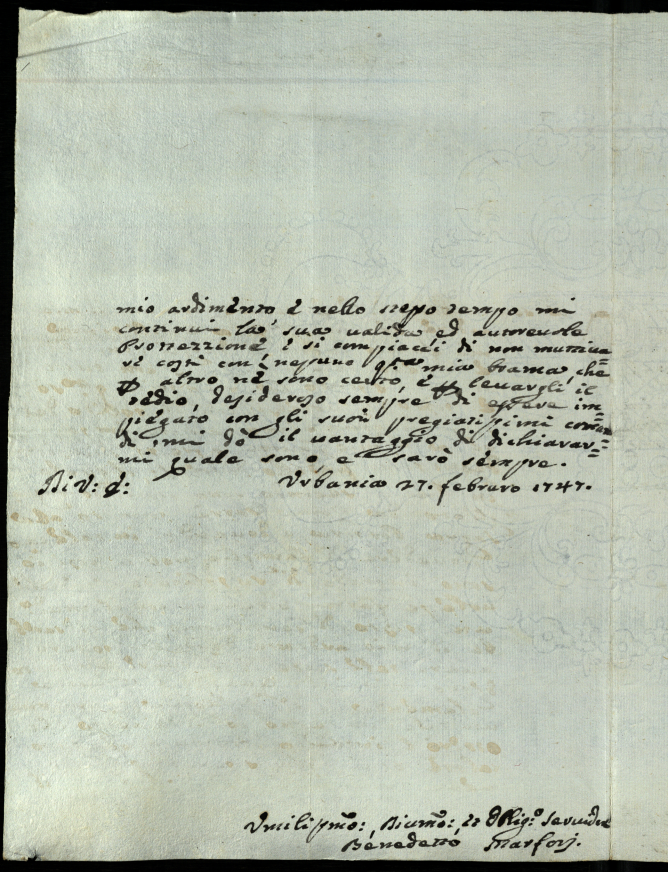 mio ardimento è nello stesso tempo mi
continui la sua valida ed autorevole
Protezzione è si compiacci di non muttiva
re costì con nessuno qsta mia brama che
altro nè sono certo, è levargli il
tedio, desideroso sempre di essere im=
piegato con gli suoi pregiatissimi coman
di, mi dò il vantaggio di dichiarar=
mi quale sono e sarò sempre.
Di V: Urbania 27. febraro 1747.
Umilissmo: Divmo: et Obligo Servidre
Benedetto Marforj.